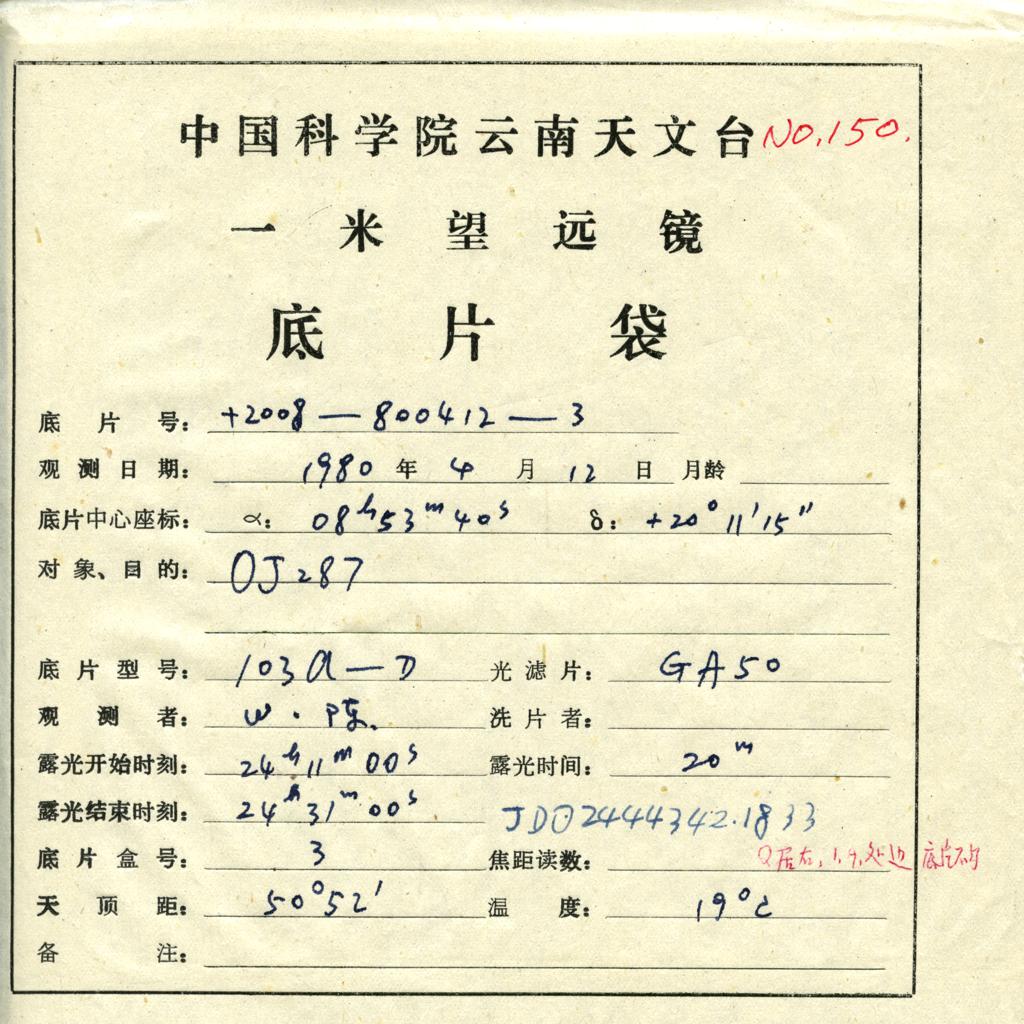 中国科学院云南天文台 NO.150.
一米望远镜
底片袋
底片号: +2008—800412—3
观测日期: 1980年4月12日 月龄
底片中心座标: α: 08ʰ53ᵐ40ˢ δ: +20°11′15″
对象、目的: OJ287
底片型号: 103a—D 光滤片: GA50
观测者: W.陈. 洗片者:
露光开始时刻: 24ʰ11ᵐ00ˢ 露光时间: 20ᵐ
露光结束时刻: 24ʰ31ᵐ00ˢ JD⊙2444342.1833
底片盒号: 3 焦距读数:
天顶距: 50°52′ 温度: 19°C
备注: